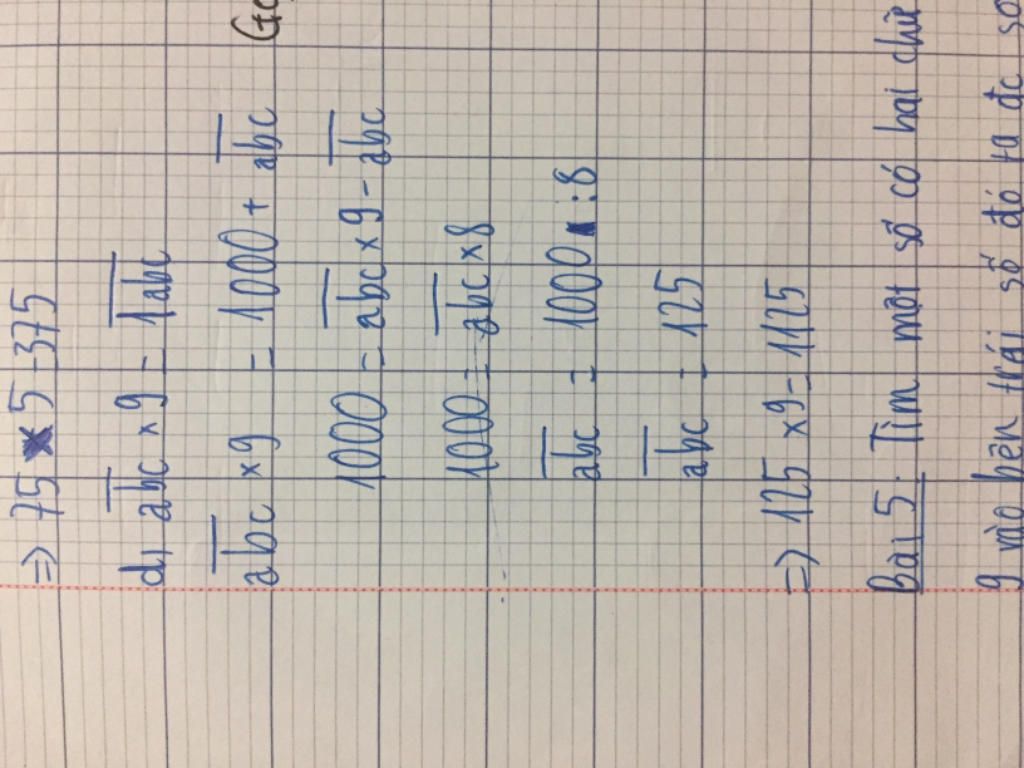 => 75 x 5 = 375
d) abc x 9 = 1abc
abc x 9 = 1000 + abc
1000 = abc x 9 - abc
1000 = abc x 8
abc = 1000 : 8
abc = 125
=> 125 x 9 = 1125
Bài 5. Tìm một số có hai chữ
9 vào bên trái số đó ta đc số